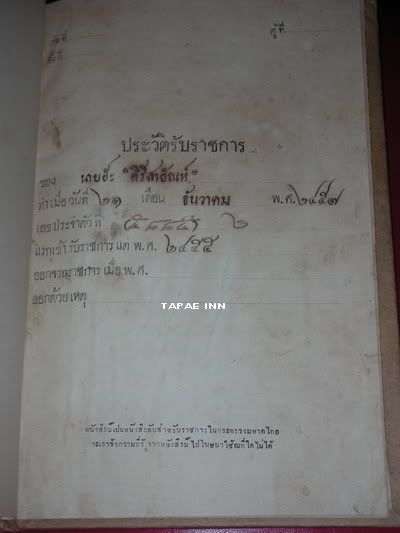 เล่มที่ ตู้ที่
ชั้นที่
ประวัติรับราชการ
ของ นายฮะ "ศิริสาฮัณห์"
ทำเมื่อวันที่ ๒๑ เดือน ธันวาคม พ.ศ. ๒๔๕๗
เลขประจำตัวที่ ๒
แรกเข้ารับราชการแต่ พ.ศ. ๒๔๕๕
ออกจากราชการเมื่อ พ.ศ.
ออกด้วยเหตุ
TAPAE INN
หนังสือนี้เป็นหนังสือลับสำหรับราชการในกระทรวงมหาดไทย
จะเอาข้อความที่รู้จากหนังสือนี้ไปโฆษนาใช้ณที่ใดไม่ได้